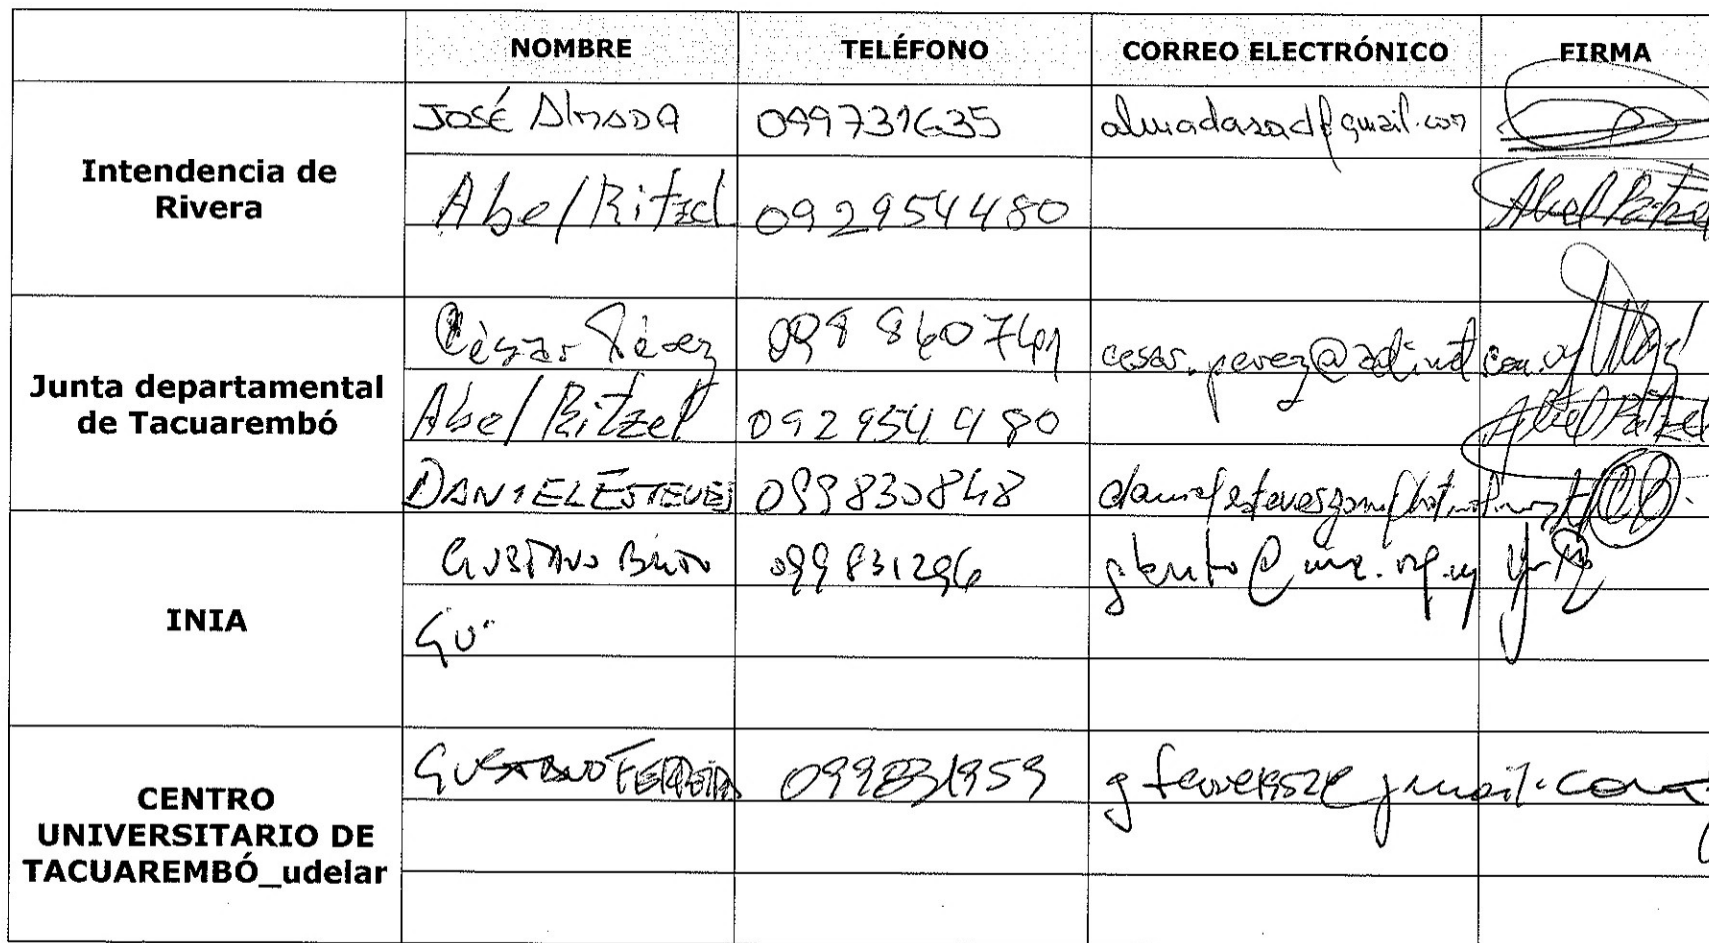 NOMBRE TELÉFONO CORREO ELECTRÓNICO FIRMA
Intendencia de Rivera
José Almada 099731635
Abel Ritzel 092954480 Abel Ritzel
Junta departamental de Tacuarembó
César Pérez cesar.perez@adinet.com.uy
Abel Ritzel 092954480 Abel Ritzel
DANIEL ESTEVES 099830848
INIA
Gustavo Brito 099831296
Gu
CENTRO UNIVERSITARIO DE TACUAREMBÓ_udelar
Gustavo Ferreira 099831959